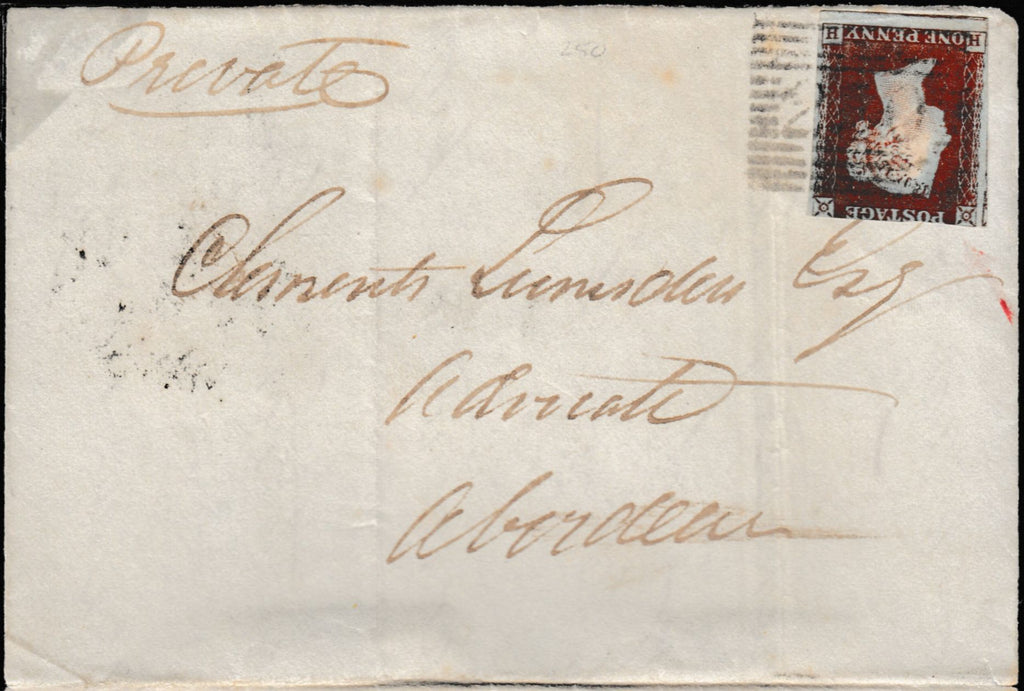 Private
280
POSTAGE
H ONE PENNY H
Clements Lumsden Esq
Advocate
Aberdeen